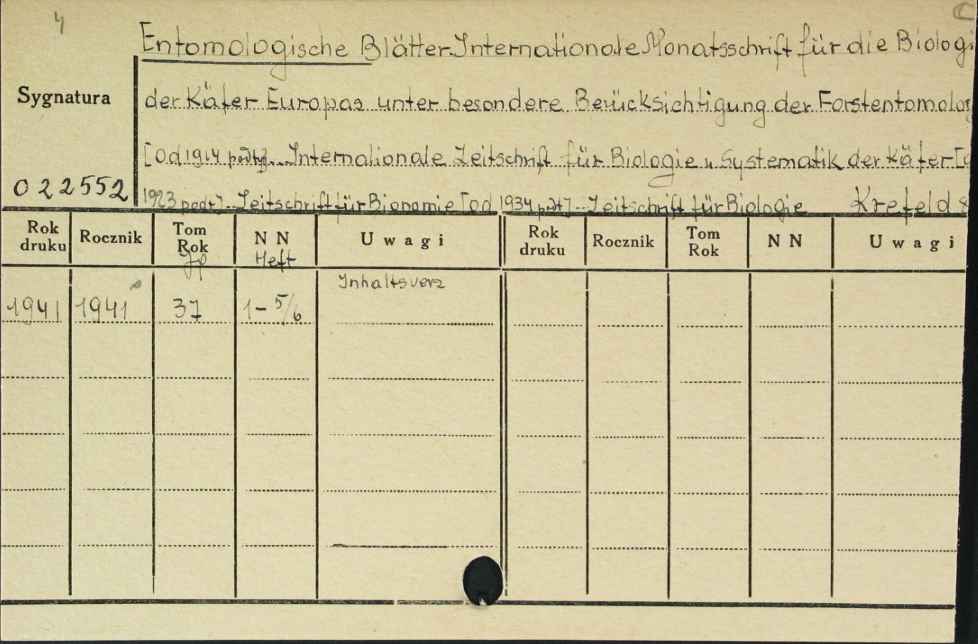 4
Entomologische Blätter. Internationale Monatsschrift für die Biologi
Sygnatura
der Käfer Europas unter besondere Berücksichtigung der Forstentomolog
[od 1914 podt.]. Internationale Zeitschrift für Biologie u. Systematik der Käfer [o
022552
1923 podt.]. Zeitschrift für Bionomie [od 1934 pdt]. Zeitschrift für Biologie Krefeld
Rok druku Rocznik Tom Rok NN Uwagi Rok druku Rocznik Tom Rok NN Uwagi
Jg Heft
Inhaltsverz
1941 1941 37 1-5/6